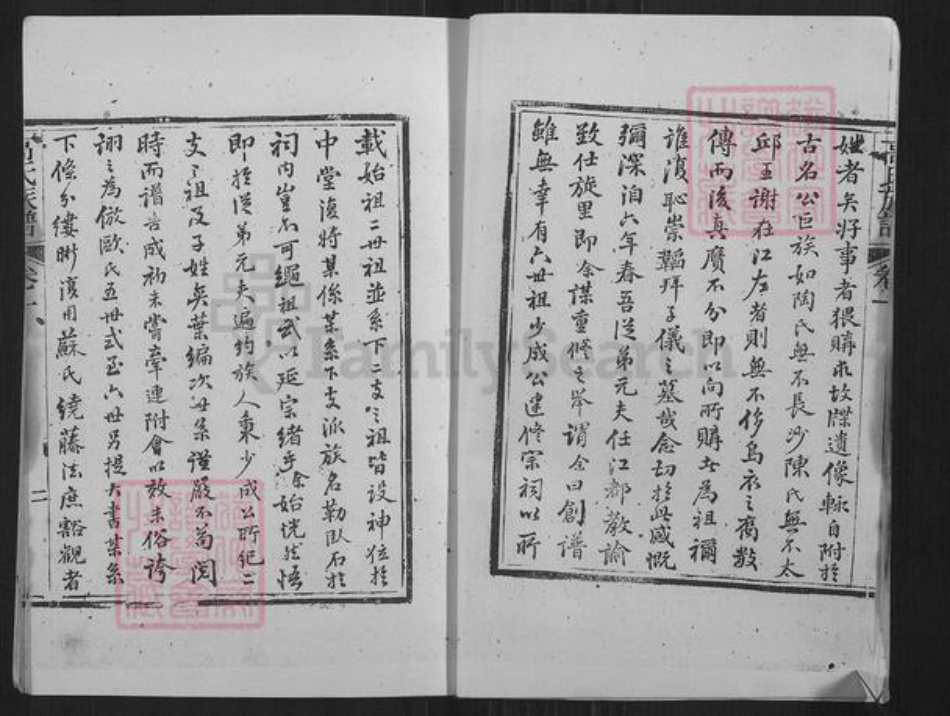 高氏族譜 卷一
者矣好事者猥購求故牒遺像輒自附於
古名公巨族如陶氏無不長沙陳氏無不太
邱王謝在江左者則無不侈烏衣之舊數
傳而後真贗不分即以向所購者為祖禰
誰復恥崇韜拜子儀之墓哉念切於此感慨
彌深洎六年春吾從弟元夫任江都教諭
致仕旋里即余謀重修之舉謂余曰創譜
雖無幸有六世祖少成公建修宗祠以所
載始祖二世祖並系下二支之祖皆設神位於
中堂復將某係某系下支派族名勒臥石於
祠內豈不可繩祖武以延宗緒乎余始恍然悟
即於從弟元夫遍約族人秉少成公所紀二
支之祖及子姓奕葉編次毋荼謹嚴不苟閱
時而譜告成初未嘗牽連附會以效末俗誇
詡之為倣歐氏五世式至六世另提大書某系
下條分縷晰復用蘇氏繞藤法庶豁觀者
氏族譜 卷一 二
FamilySearch